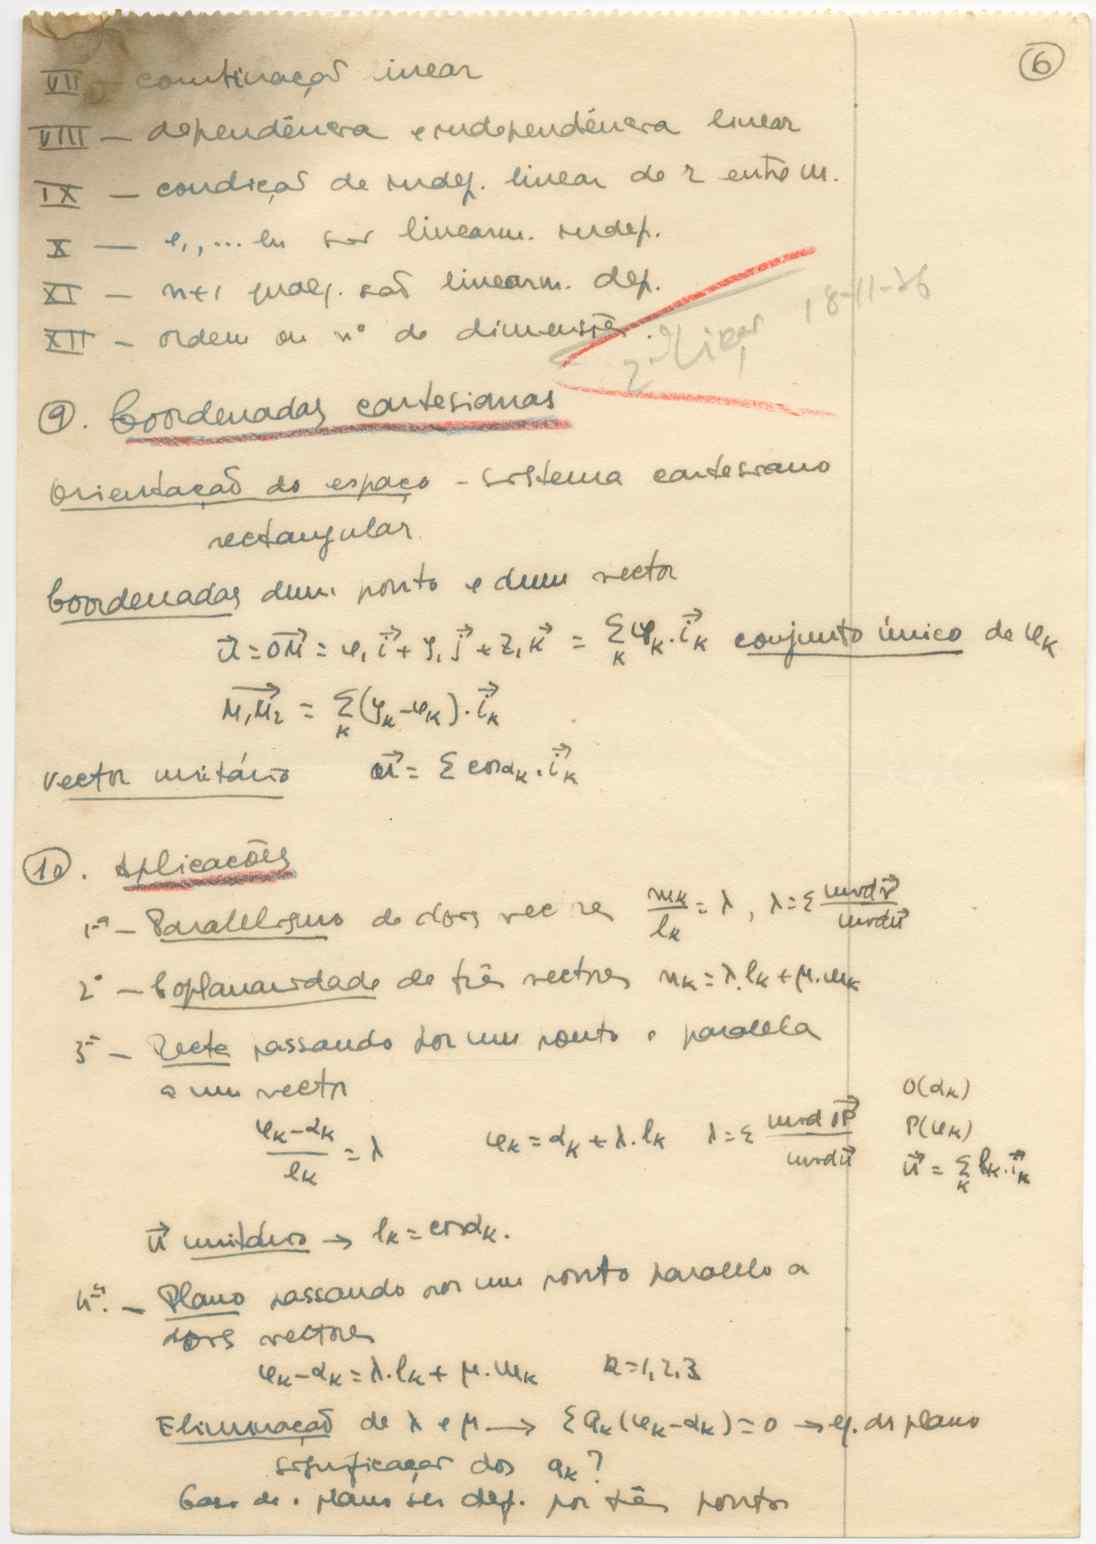 6
VII – combinação linear
VIII – dependência e independência linear
IX – condição de indep. linear de r entre m.
X — e₁, ... en são linearm. indep.
XI – n+1 quaesq. são linearm. dep.
XII – ordem ou nº de dimensões.
18-11-36
9. Coordenadas cartesianas
Orientação do espaço – sistema cartesiano
rectangular
Coordenadas dum ponto e dum vector
u⃗ = OM⃗ = x₁ i⃗ + y₁ j⃗ + z₁ k⃗ = Σ_k x_k . i⃗_k conjunto único de x_k
M₁M₂⃗ = Σ_k (y_k – x_k) . i⃗_k
Vector unitário u⃗ = Σ cos α_k . i⃗_k
10. Aplicações
1º – Paralelismo de dois vectores m_k / l_k = λ , λ = ε mod v⃗ / mod u⃗
2º – Coplanaridade de três vectores n_k = λ . l_k + μ . m_k
3º – Recta passando por um ponto e paralela
a um vector
O(α_k)
(x_k – α_k) / l_k = λ x_k = α_k + λ . l_k λ = ε mod OP⃗ / mod u⃗ P(x_k)
u⃗ = Σ_k l_k . i⃗_k
u⃗ unitário → l_k = cos α_k.
4º. – Plano passando por um ponto paralelo a
dois vectores
x_k – α_k = λ . l_k + μ . m_k k = 1, 2, 3
Eliminação de λ e μ → Σ a_k (x_k – α_k) = 0 → eq. do plano
significação dos a_k ?
Caso de o plano ser def. por três pontos